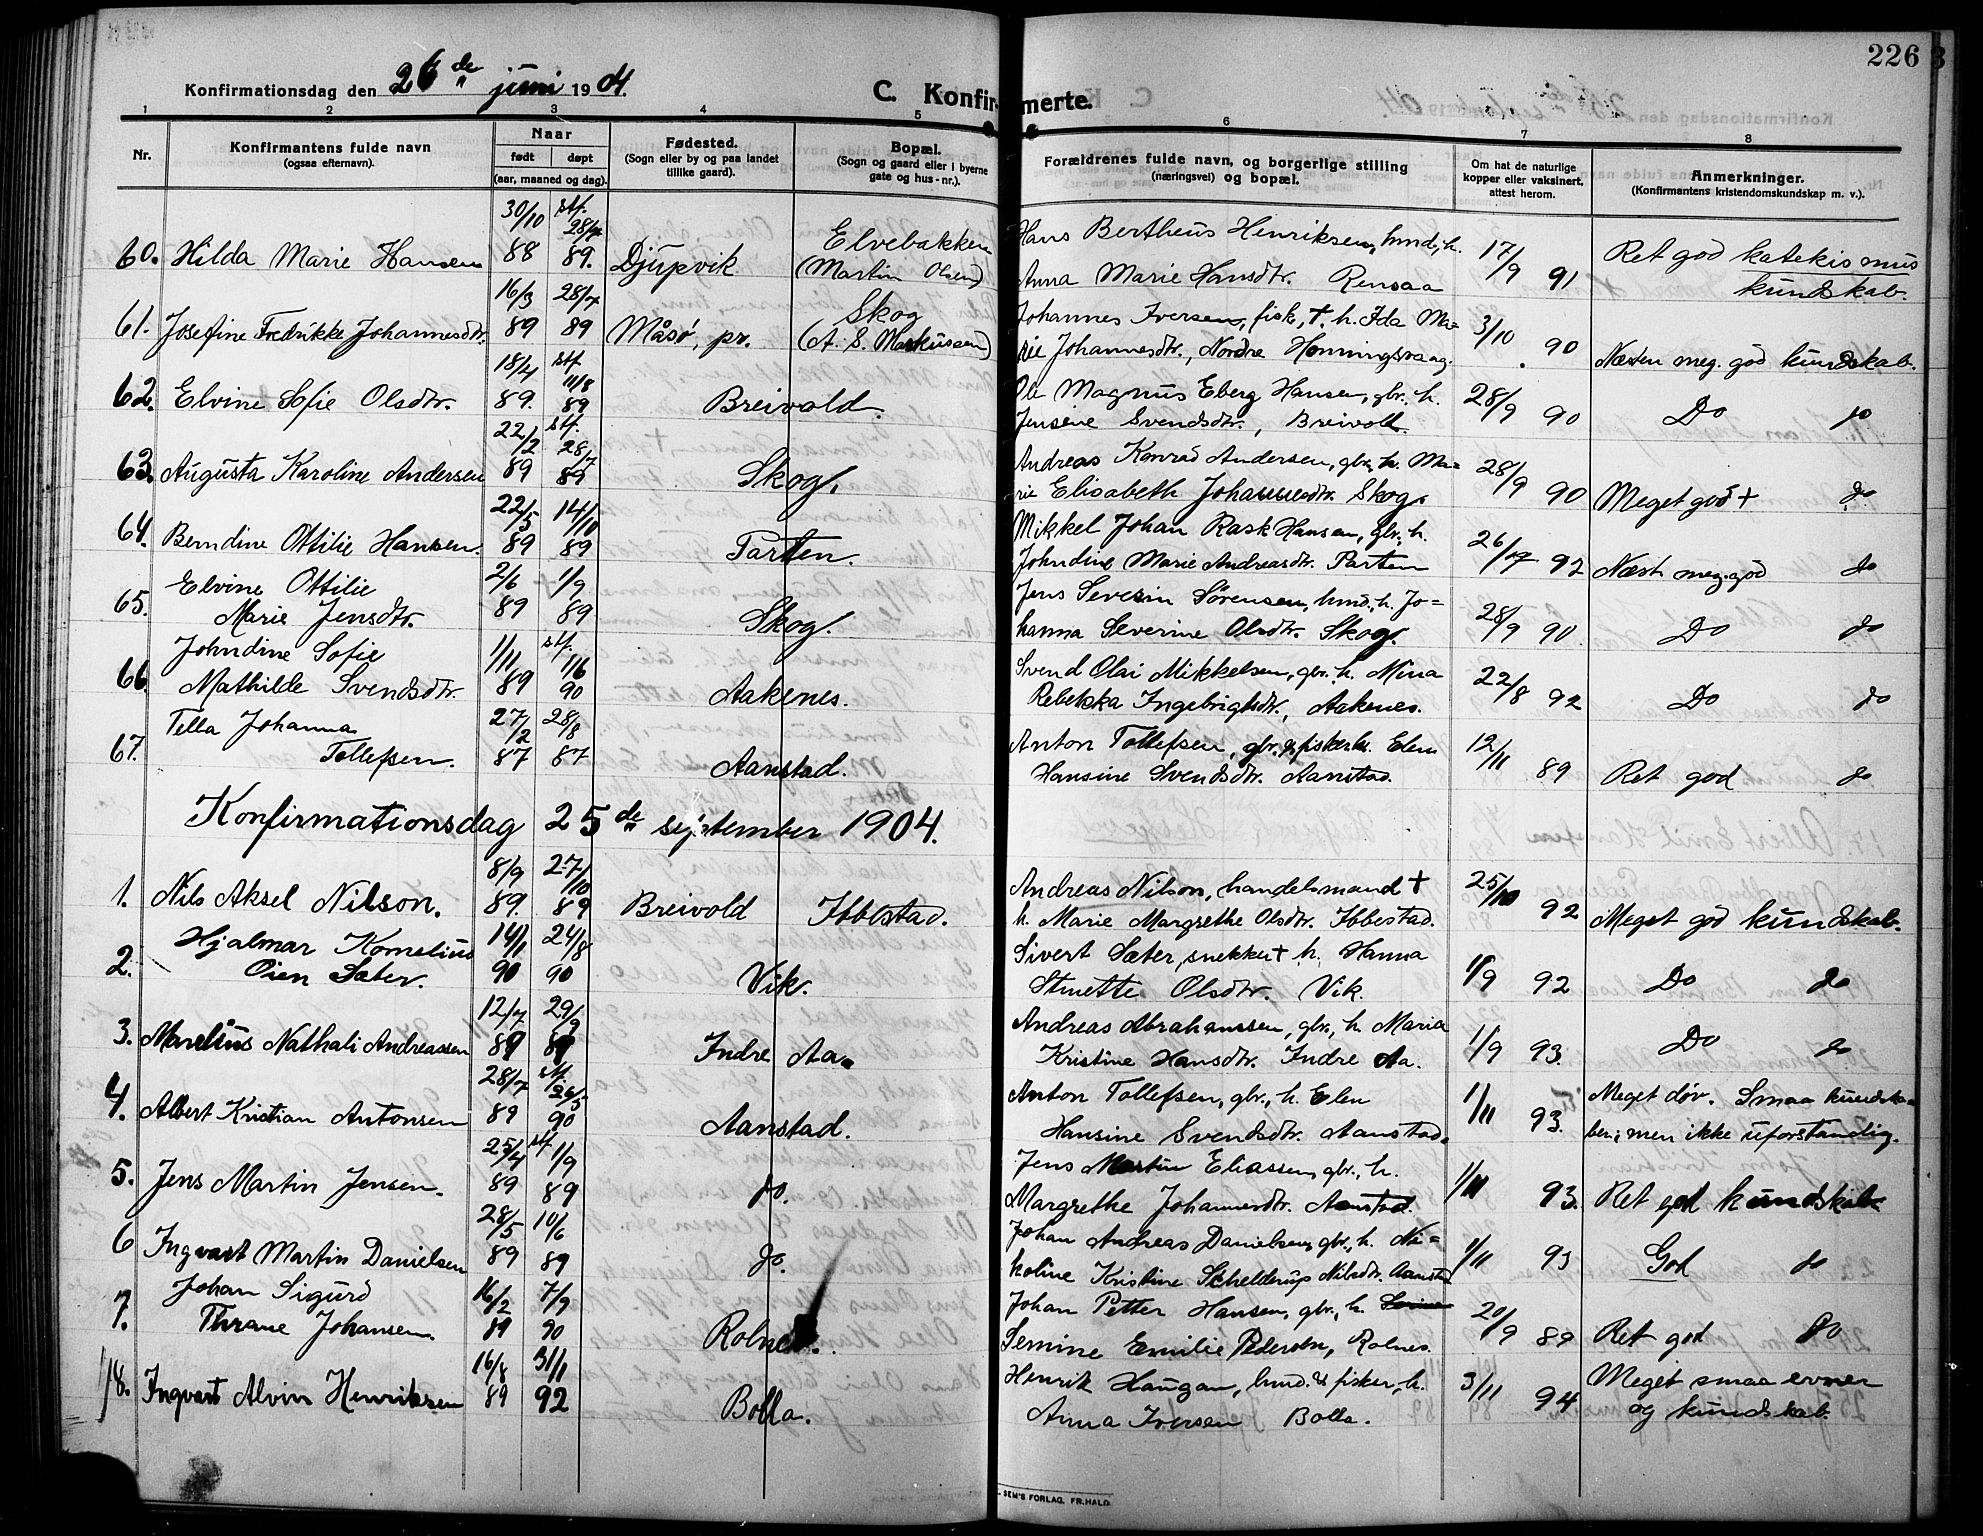 226
Konfirmationsdag den 26de juni 1904.
C. Konfirmerte.
1 2 3 4 5 6 7 8
Nr.
Konfirmantens fulde navn
(ogsaa efternavn).
Naar
født døpt
(aar, maaned og dag).
Fødested.
(Sogn eller by og paa landet
tillike gaard).
Bopæl.
(Sogn og gaard eller i byerne
gate og hus-nr.).
Forældrenes fulde navn, og borgerlige stilling
(næringsvei) og bopæl.
Om hat de naturlige
kopper eller vaksinert,
attest herom.
Anmerkninger.
(Konfirmantens kristendomskundskap m. v.).
60. Hilda Marie Hansen 30/10 88 stf. 28/4 89. Djupvik Elvebakken (Martin Olsen)
Hans Bertheus Henriksen, hmd., h.
Anna Marie Hansdtr. Rensaa 17/9 91
Ret god katekismus
kundskab.
61. Josefine Fredrikke Johannesdtr. 16/3 89 28/7 89 Måsø, pr. Skog (A. S. Markussen)
Johannes Iversen, fisk., †. h. Ida Ma=
rie Johannesdtr., Nordre Honningsvaag. 3/10 90 Næsten meg. god kundskab.
62. Elvine Sofie Olsdtr. 18/4 89. stf. 11/8 89 Breivold.
Ole Magnus Eberg Hansen, gbr. h.
Jensine Svendsdtr., Breivold. 28/9 90 Do do
63. Augusta Karoline Andersen 22/2 89 stf. 28/7 89 Skog.
Andreas Konrad Andersen, gbr., h. Ma=
rie Elisabeth Johannesdtr. Skog. 28/9 90 Meget god + do
64. Berndine Ottilie Hansen. 22/5 89 14/10 89 Parten.
Mikkel Johan Rask Hansen, gbr., h.
Johndine Marie Andreasdtr. Parten 92 Næst. meg. god do
65. Elvine Ottilie
Marie Jensdtr. 2/6 89 1/9 89 Skog.
Jens Severin Sørensen, hmd., h. Jo=
hanna Severine Olsdtr. Skog. 28/9 90. Do do
66. Johndine Sofie
Mathilde Svendsdtr. 1/11 89 stf. 1/6 90 Aakenes.
Svend Olai Mikkelsen, gbr., h. Mina
Rebekka Ingebrigtsdtr., Aakenes. 22/8 92 Do do
67. Tella Johanna
Tollefsen. 27/2 87 28/8 87 Aanstad.
Anton Tollefsen, gbr. & fisker h. Elen
Hansine Svendsdtr. Aanstad. 12/11 89 Ret god do
Konfirmationsdag 25de september 1904.
1. Nils Aksel Nilson. 8/9 89. 27/10 89 Breivold Ibbestad.
Andreas Nilson, handelsmand †
h. Marie Margrethe Olsdtr. Ibbestad. 25/10 92 Meget god kundskab.
2. Hjalmar Kornelius
Oien Sæter. 14/1 90 24/8 90 Vik.
Sivert Sæter, snekker † h. Hanna
Stinette Olsdtr. Vik. 1/9 92 Do do
3. Marelius Nathali Andreassen 12/7 89 29/9 89 Indre Aa.
Andreas Abrahamssen, gbr., h. Maria
Kristine Hansdtr. Indre Aa. 1/9 93. Do do
4. Albert Kristian Antonsen 28/7 89 stf. 29/5 90 Aanstad.
Anton Tollefsen, gbr., h. Elen
Hansine Svendsdtr. Aanstad. 1/11 93. Meget døv. Smaa kundska=
ber; men ikke uforstandig.
5. Jens Martin Jensen. 25/4 89 stf. 1/9 89 do.
Jens Martin Eliassen, gbr., h.
Margrethe Johannesdtr. Aanstad. 1/11 93. Ret god kundskab
6 Ingvart Martin Danielsen 28/5 89 10/6 89 do.
Johan Andreas Danielsen, gbr., h. Ni=
koline Kristine Schelderup Nilsdtr. Aanstad 1/11 93 God do
7. Johan Sigurd
Thrane Johansen. 16/2 89 7/9 90 Rolnes.
Johan Petter Hansen, gbr., h.
Semine Emilie Pedersen, Rolnes. 20/9 89 Ret god do
8. Ingvart Alvin Henriksen 16/8 89 31/1 92 Bolla.
Henrik Haugan, hmd. & fisker, h.
Anna Iversen Bolla. 3/11 94 Meget smaa evner
og kundskab.
SEM'S FORLAG, FR.HALD.